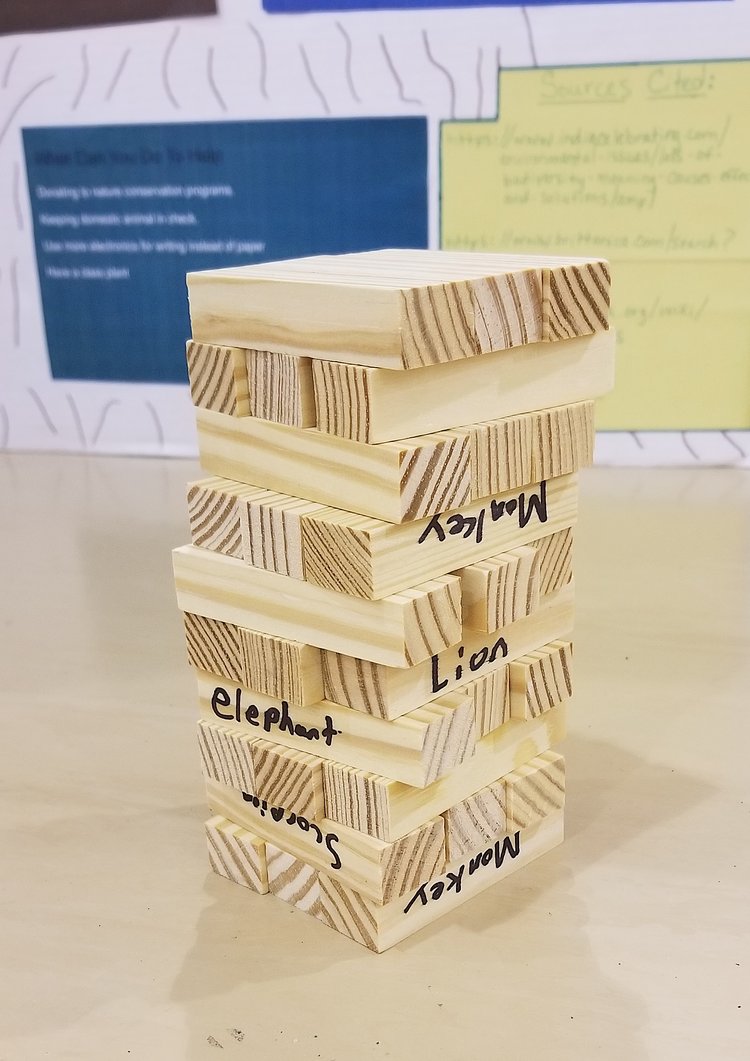 What Can You Do To Help
Donating to nature conservation programs.
Keeping domestic animal in check.
Use more electronics for writing instead of paper
Have a class plant
Sources Cited:
https://www.indiacelebrating.com/
environmental-issues/loss-of-
biodiversity-meaning-causes-effec
and-solutions/amp/
https://www.britannica.com/search?
.org/wiki/
Monkey
Lion
elephant
Scorpion
Monkey